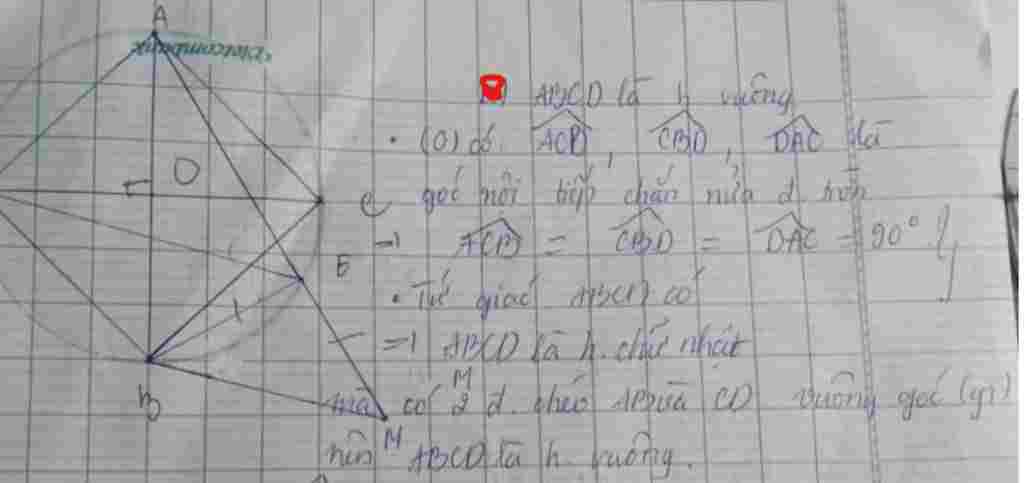 A
ABCD là h vuông
O
• (O) có ACB, CBD, DAC là
C góc nội tiếp chắn nửa đ. tròn
ACB = CBD = DAC = 90°
E
• Tứ giác ABCD có
=> ABCD là h. chữ nhật
mà có 2 đ. chéo AB và CD vuông góc (gt)
M
nên ABCD là h. vuông.